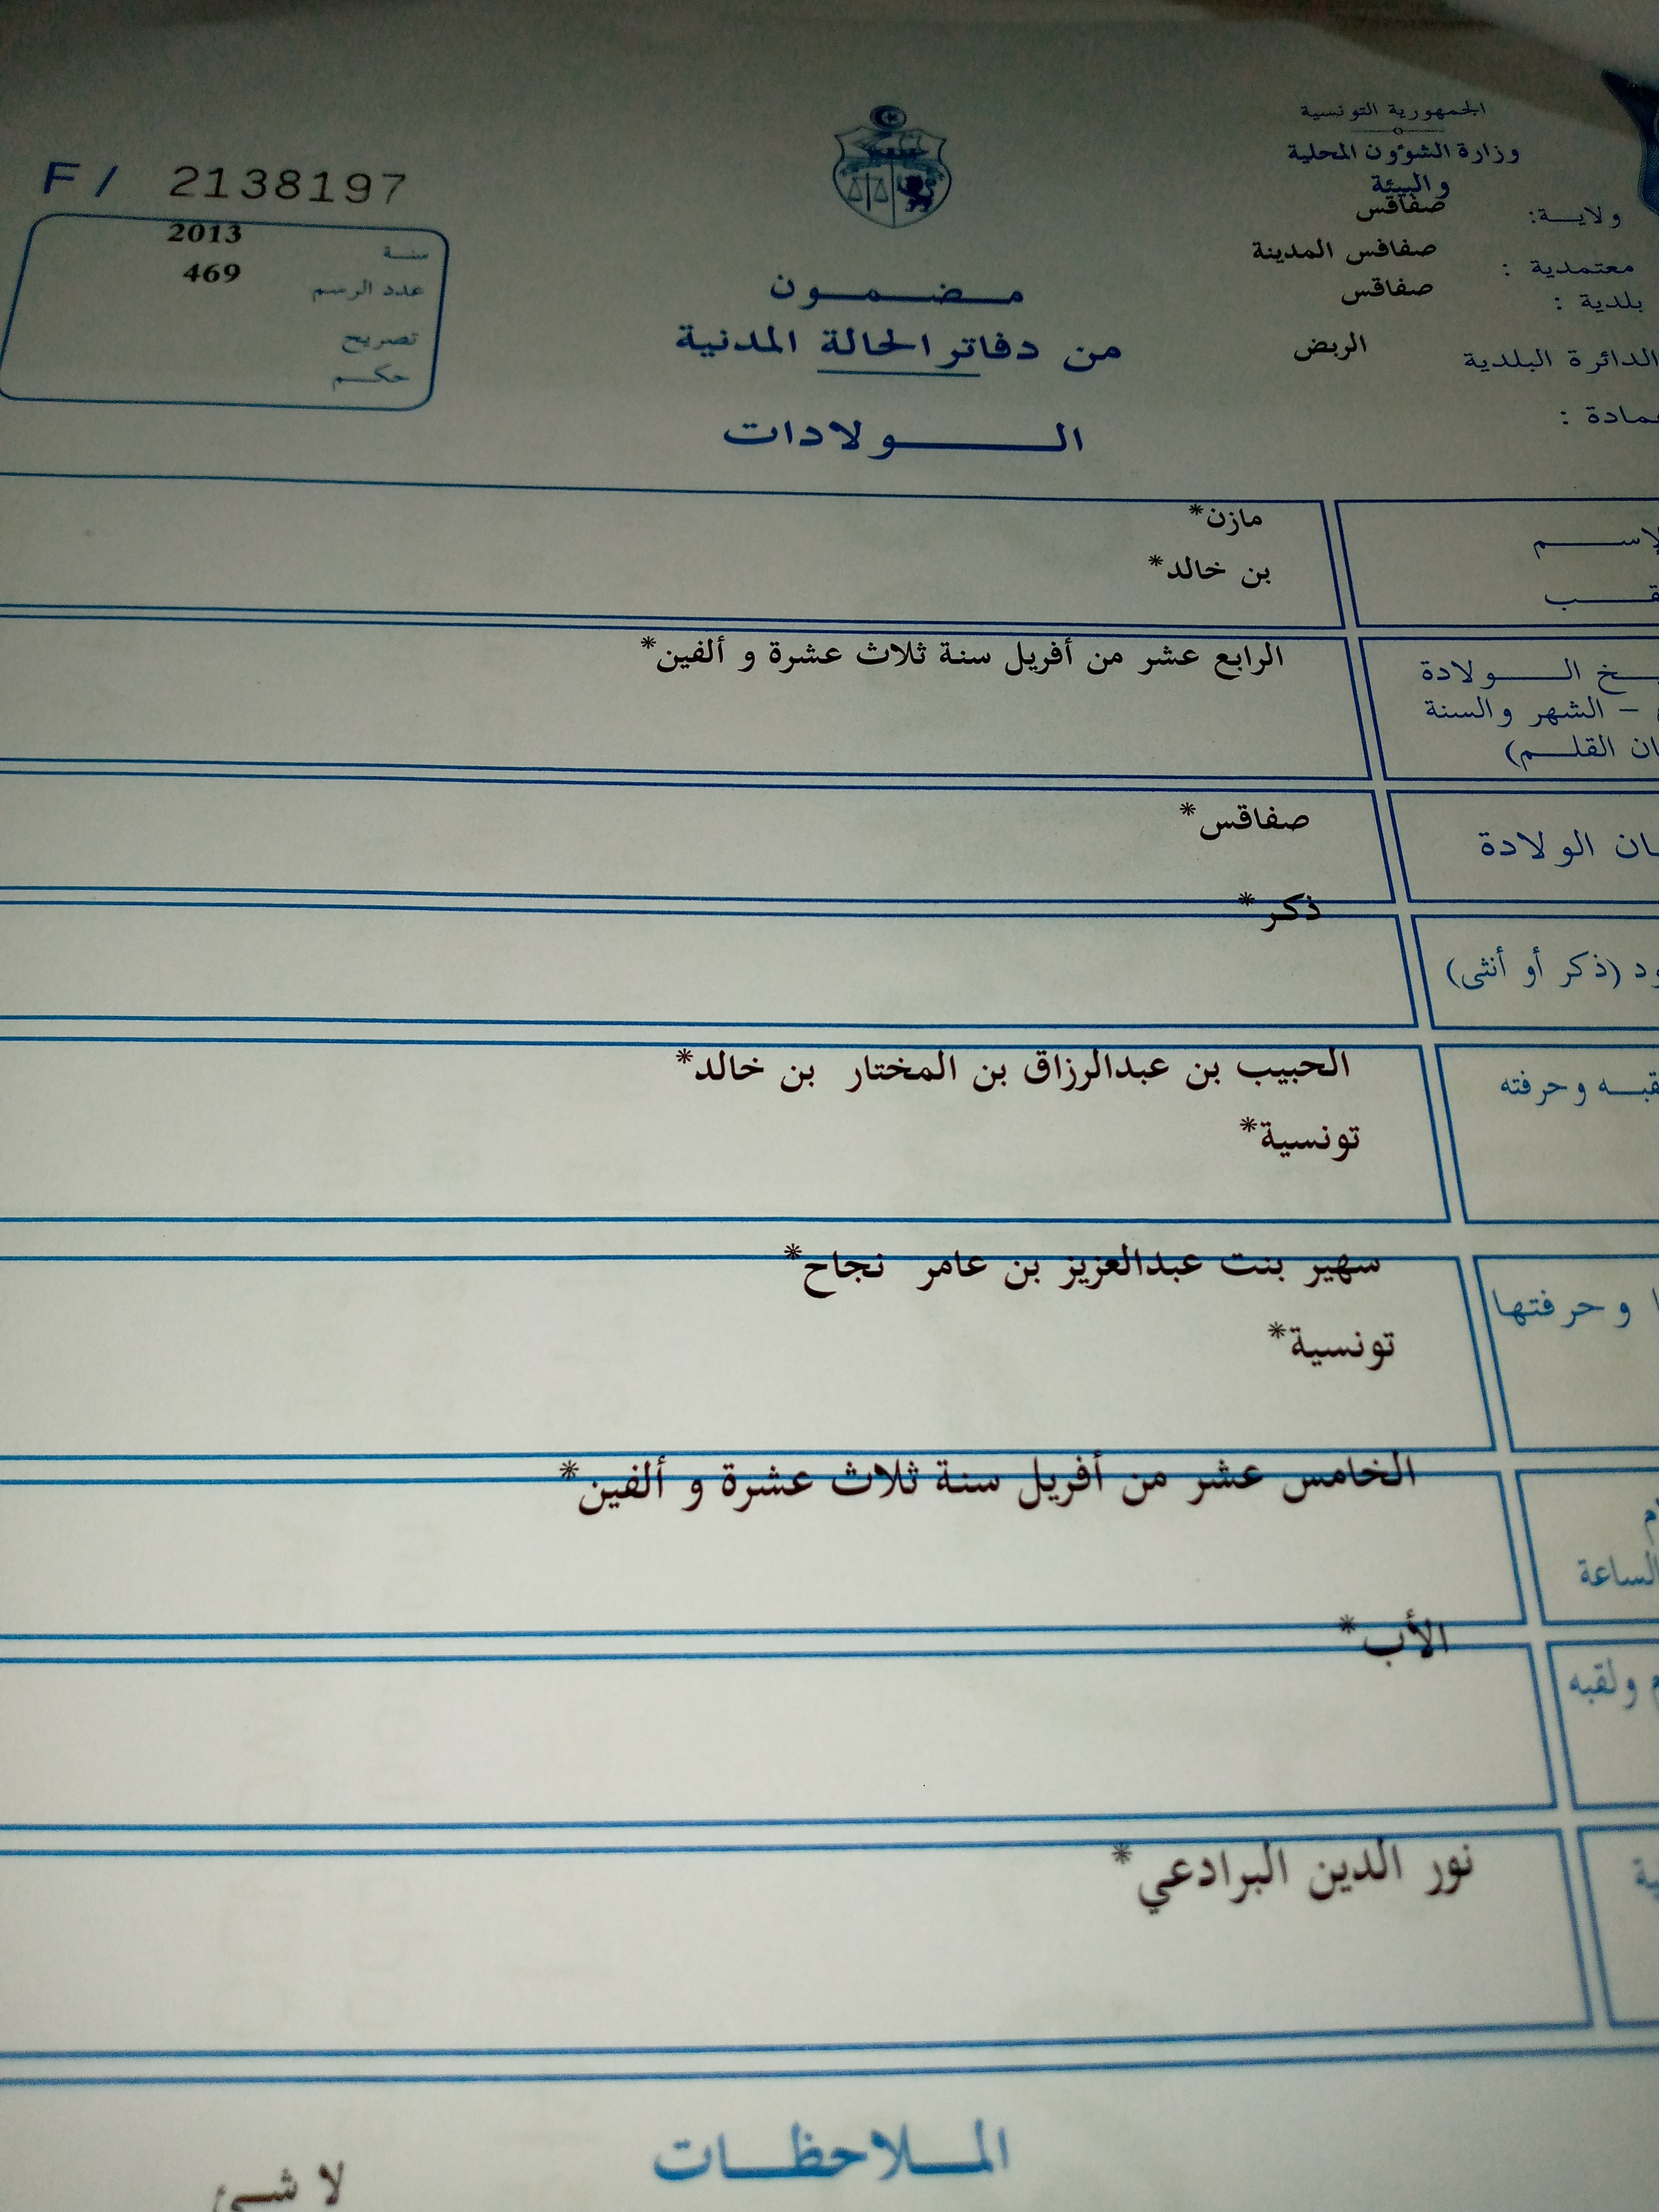 الجمهورية التونسية
وزارة الشؤون المحلية
والبيئة
ولاية: صفاقس
معتمدية : صفاقس المدينة
بلدية : صفاقس
الدائرة البلدية الربض
عمادة :
F / 2138197
سنة 2013
عدد الرسم 469
تصريح
حكم
مضمون
من دفاتر الحالة المدنية
الولادات
الإسم مازن*
قب بن خالد*
يخ الولادة الرابع عشر من أفريل سنة ثلاث عشرة و ألفين*
– الشهر والسنة
ان القلم)
ان الولادة صفاقس*
ود (ذكر أو أنثى) ذكر*
قبه وحرفته الحبيب بن عبدالرزاق بن المختار بن خالد*
تونسية*
ا وحرفتها سهير بنت عبدالعزيز بن عامر نجاح*
تونسية*
الخامس عشر من أفريل سنة ثلاث عشرة و ألفين*
الساعة
م ولقبه الأب*
نور الدين البرادعي*
الملاحظات
لا شيئ